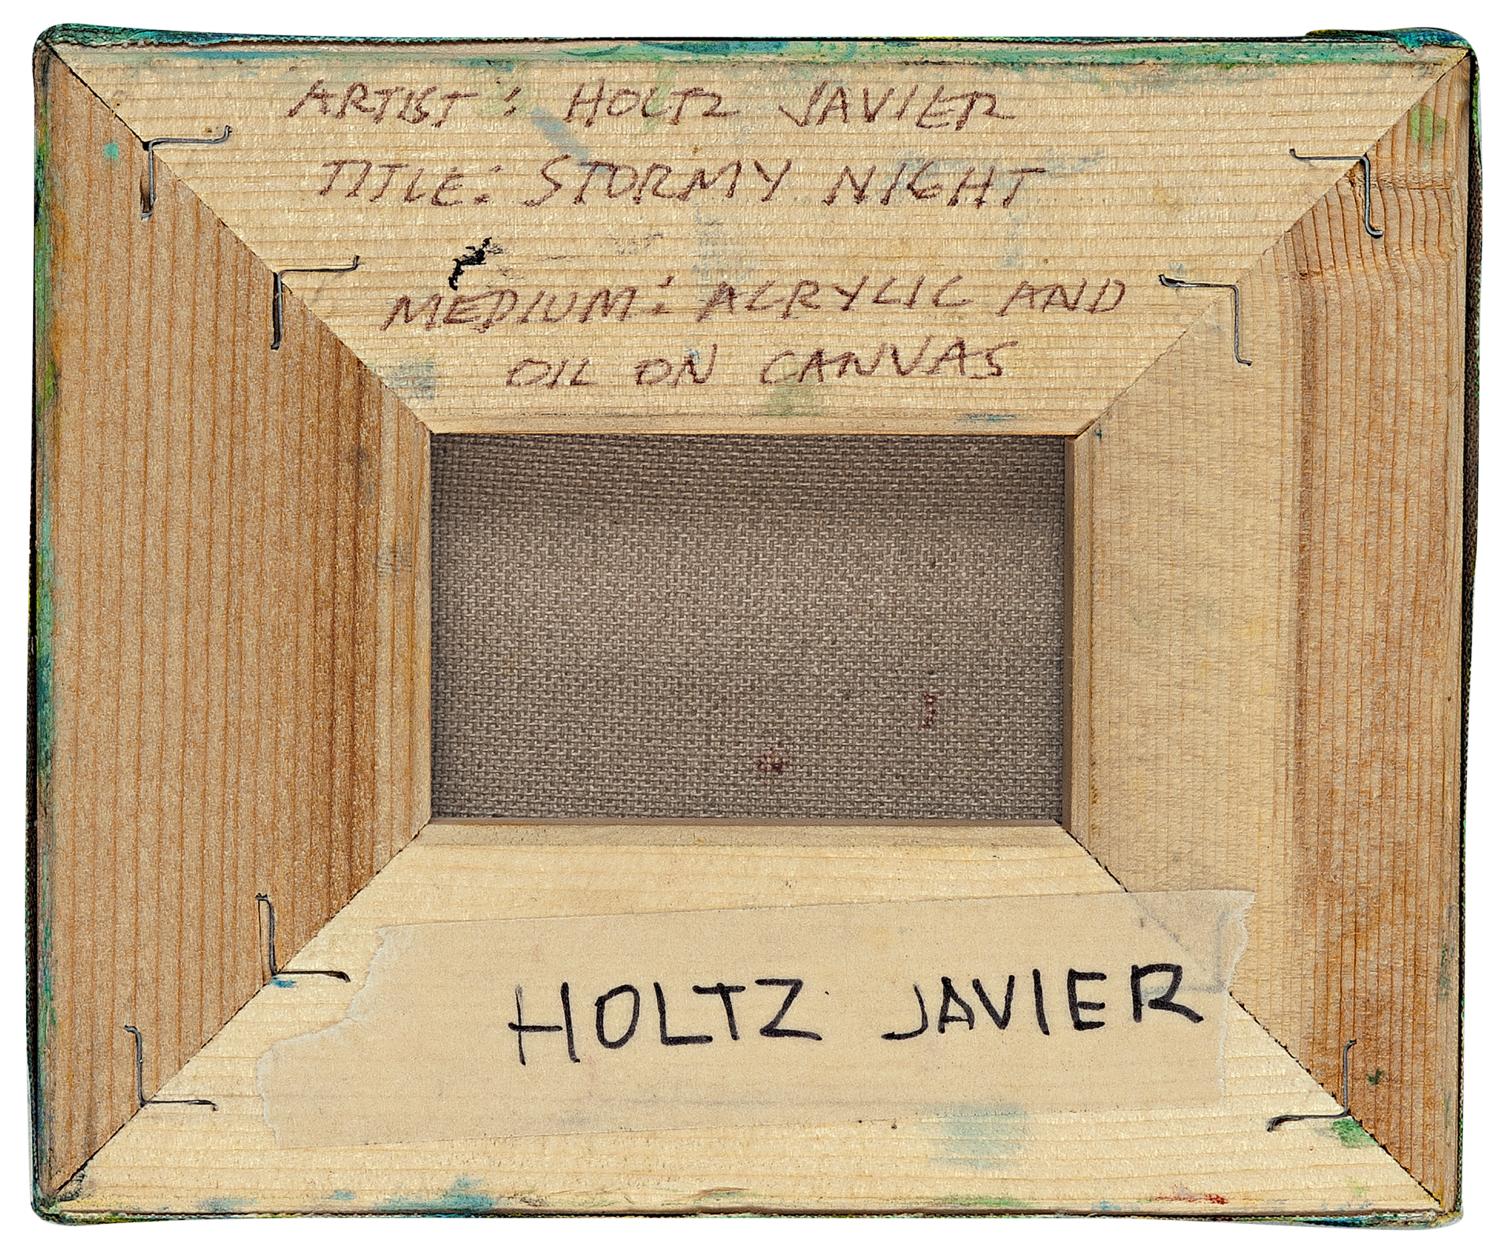 ARTIST: HOLTZ JAVIER
TITLE: STORMY NIGHT
MEDIUM: ACRYLIC AND
OIL ON CANVAS
HOLTZ JAVIER